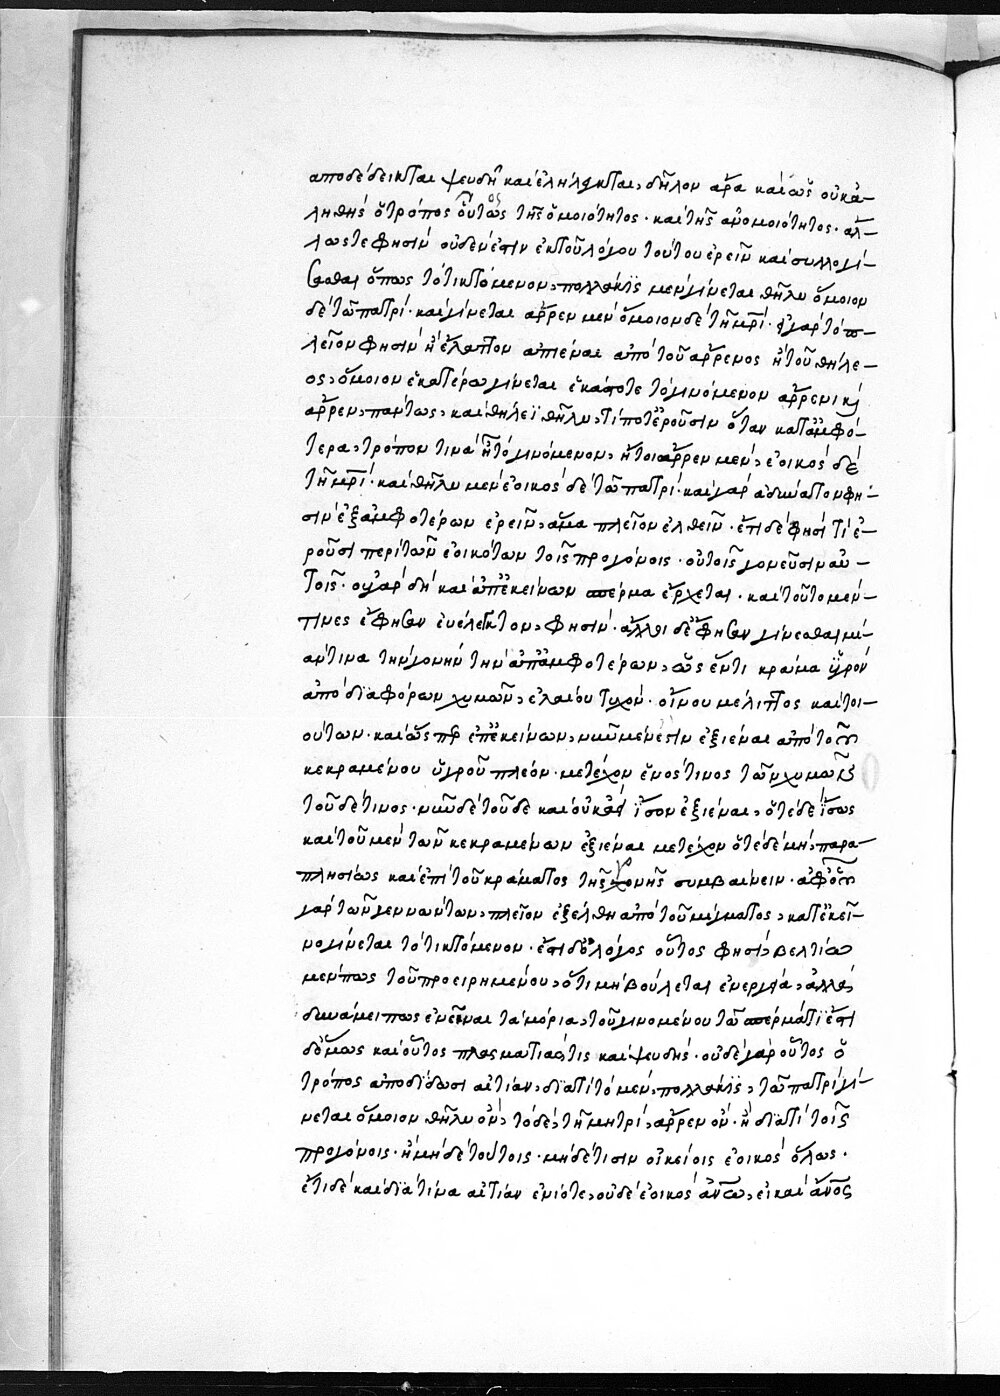 αποδέδεικται ψευδῆ και ἐλήλεγκται, δῆλον ἄρα και ὡς οὐκ ἀ-
ληθὴς ὁ τρόπος οὗτος τῆς ὁμοιότητος· και τῆς ἀνομοιότητος· ἄλ-
λως τε φησὶν οὐδέν ἐστιν ἐκ τοῦ λόγου τούτου ἐρεῖν και συλλογί-
σασθαι ὅπως τὸ τικτόμενον, πολλάκις μεν γίνεται θῆλυ ὅμοιον
δὲ τῶ πατρί· και γίνεται ἄρρεν μεν ὅμοιον δὲ τῆ μητρί· εἰ γαρ τὸ π-
λεῖον φησὶν ἢ ἔλαττον απιέναι από τοῦ ἄρρενος ἢ τοῦ θήλε-
ος, ὅμοιον ἑκατέρω γίνεται ἑκάστοτε τὸ γινόμενον ἄρρενι καὶ
ἄρρεν, πάντως, και θήλεϊ θῆλυ, τί ποτ' ἐροῦσιν ὅταν κατ' ἀμφό-
τερα, τρόπον τινὰ ἦ τὸ γινόμενον, ἤτοι ἄρρεν μεν, ἐοικὸς δὲ
τῆ μητρί· και θῆλυ μεν ἐοικὸς δὲ τῶ πατρί· και γαρ ἀδύνατον φη-
σὶν ἐξ ἀμφοτέρων ἐρεῖν, ἅμα πλεῖον ἐλθεῖν· ἔτι δέ φησι τί ἐ-
ροῦσι περὶ τῶν ἐοικότων τοῖς προγόνοις· οὐ τοῖς γονεῦσιν αὐ-
τοῖς· οὐ γαρ δὴ και ἀπ' ἐκείνων σπέρμα ἔρχεται· και τοῦτο μέν
τινες ἔφησαν εὐέλεγκτον, φησίν· ἄλλοι δὲ ἔφησαν γίνεσθαι μί-
αν τινα την γονήν την ἀπ' ἀμφοτέρων, ὥς ἐν τι κρᾶμα ὑγρόν
από διαφόρων χυμῶν, ἐλαίου τυχόν· οἴνου μέλιτος και τοι-
ούτων· και ὥσπερ ἐπ' ἐκείνων, νῦν μέν ἐστιν ἐξιέναι από τοῦ
κεκραμένου ὑγροῦ πλέον· μετέχον ἑνός τινος τῶν χυμῶν ἐξ
τοῦδέ τινος· νῦν δὲ τοῦδε και οὐκ ἀεί ἴσον ἐξιέναι, ὁτὲ δὲ ἴσως
και τοῦ μεν τῶν κεκραμένων ἐξιέναι μετέχον ὁτὲ δὲ μή, παρα-
πλησίως και ἐπι τοῦ κράματος τῆς γονῆς συμβαίνειν· ἀφ' οὗ
γαρ τῶν γεννώντων, πλεῖον ἐξέλθη από τοῦ μίγματος, κατ' ἐκεῖ-
νο γίνεται τὸ τικτόμενον· ἔστι δὲ ὁ λόγος οὗτος φησὶ, βελτίων
μέν πως τοῦ προειρημένου, ὅτι μὴ βούλεται ἐνεργεία, ἀλλὰ
δυνάμει πως ἐνεῖναι τα μόρια, τοῦ γινομένου τῶ σπέρματι ἔστι
δ' ὅμως και οὗτος πλασματίας τις και ψευδής· οὐδὲ γαρ οὗτος ὁ
τρόπος αποδίδωσι αἰτίαν, διατί τὸ μεν, πολλάκις, τῶ πατρὶ γί-
νεται ὅμοιον θῆλυ ὄν, τὸ δὲ, τῆ μητρί, ἄρρεν ὄν· ἢ διατί τοῖς
προγόνοις· ἢ μὴ δὲ τούτοις· μὴ δέ τισιν οἰκείοις ἐοικὸς ὅλως·
ἔτι δὲ και δια τίνα αἰτίαν ἐνίοτε, οὐδὲ ἐοικὸς ἀνθρώπω, εἰ και ἄνθρωπος